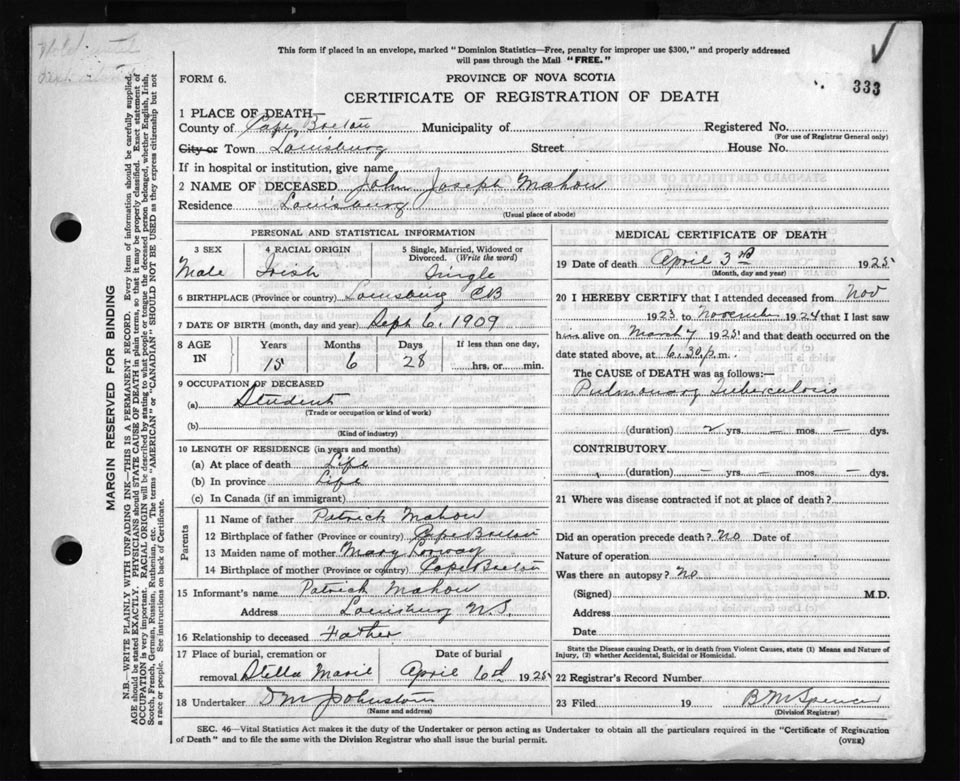 This form if placed in an envelope, marked "Dominion Statistics—Free, penalty for improper use $300," and properly addressed
will pass through the Mail "FREE."
FORM 6.
PROVINCE OF NOVA SCOTIA
333
CERTIFICATE OF REGISTRATION OF DEATH
1 PLACE OF DEATH—
County of Cape Breton Municipality of Registered No.
(For use of Registrar General only)
City or Town Louisburg Street House No.
If in hospital or institution, give name
2 NAME OF DECEASED John Joseph Mahon
Residence Louisburg
(Usual place of abode)
PERSONAL AND STATISTICAL INFORMATION
3 SEX 4 RACIAL ORIGIN 5 Single, Married, Widowed or
Divorced. (Write the word)
Male Irish Single
6 BIRTHPLACE (Province or country) Louisburg CB
7 DATE OF BIRTH (month, day and year) Sept 6, 1909
8 AGE Years Months Days If less than one day,
IN 15 6 28 hrs. or min.
9 OCCUPATION OF DECEASED
(a) Student
(Trade or occupation or kind of work)
(b)
(Kind of industry)
10 LENGTH OF RESIDENCE (in years and months)
(a) At place of death Life
(b) In province Life
(c) In Canada (if an immigrant)
Parents
11 Name of father Patrick Mahon
12 Birthplace of father (Province or country) Cape Breton
13 Maiden name of mother Mary Conway
14 Birthplace of mother (Province or country) Cape Breton
15 Informant's name Patrick Mahon
Address Louisburg N.S.
16 Relationship to deceased Father
17 Place of burial, cremation or Date of burial
removal Stella Maris April 6th 1925
18 Undertaker D M Johnston
(Name and address)
MEDICAL CERTIFICATE OF DEATH
19 Date of death April 3rd 1925
(Month, day and year)
20 I HEREBY CERTIFY that I attended deceased from Nov
1923 to November 1924 that I last saw
him alive on March 7 1925 and that death occurred on the
date stated above, at 6.30 p.m.
The CAUSE of DEATH was as follows:—
Pulmonary Tuberculosis
(duration) 2 yrs. — mos. — dys.
CONTRIBUTORY.
(duration) — yrs. — mos. — dys.
21 Where was disease contracted if not at place of death?
Did an operation precede death? No Date of
Nature of operation
Was there an autopsy? No
(Signed) M.D.
Address
Date
State the Disease causing Death, or in death from Violent Causes, state (1) Means and Nature of
Injury, (2) whether Accidental, Suicidal or Homicidal.
22 Registrar's Record Number
23 Filed 19 B M Spencer
(Division Registrar)
SEC. 46—Vital Statistics Act makes it the duty of the Undertaker or person acting as Undertaker to obtain all the particulars required in the "Certificate of Registration
of Death" and to file the same with the Division Registrar who shall issue the burial permit. (OVER)
MARGIN RESERVED FOR BINDING
N.B.—WRITE PLAINLY WITH UNFADING INK—THIS IS A PERMANENT RECORD. Every item of information should be carefully supplied.
AGE should be stated EXACTLY. PHYSICIANS should STATE CAUSE OF DEATH in plain terms, so that it may be properly classified. Exact statement of
OCCUPATION is very important. RACIAL ORIGIN will be described by stating to what people or tongue the deceased person belonged, whether English, Irish,
Scotch, French, German, Russian, Ruthenian, etc. The terms "AMERICAN" or "CANADIAN" SHOULD NOT BE USED as they express citizenship but not
a race or people. See instructions on back of Certificate.